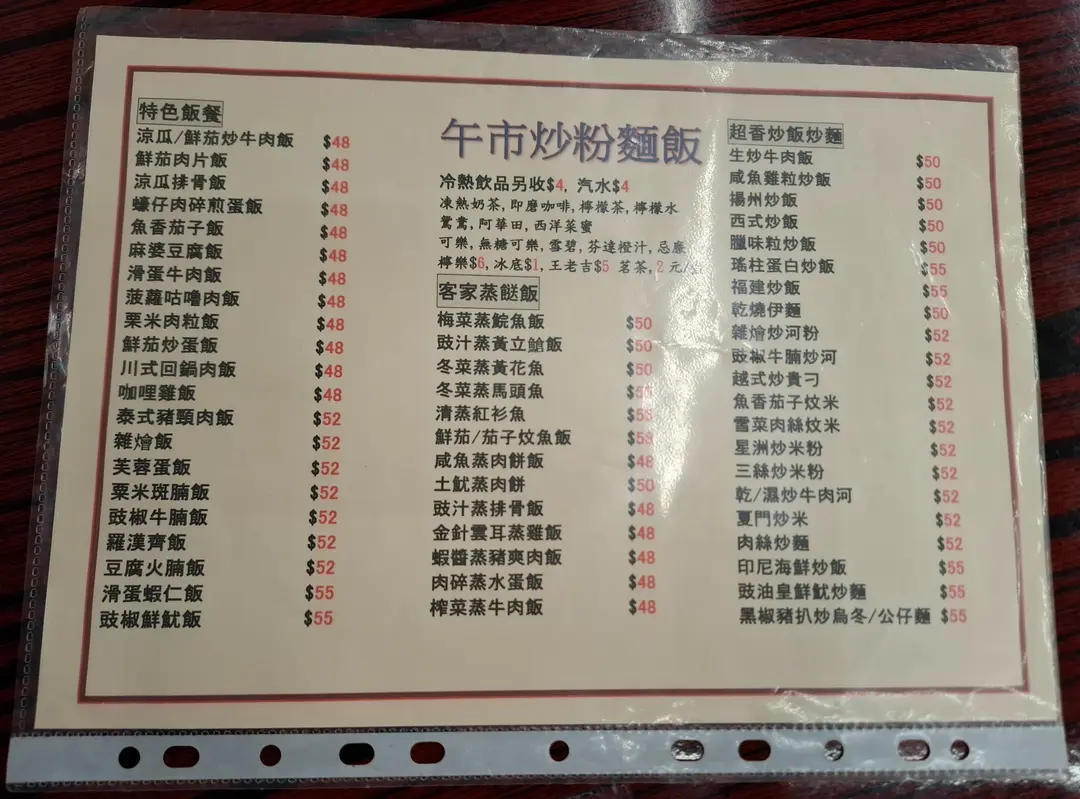 特色飯餐
涼瓜/鮮茄炒牛肉飯 $48
鮮茄肉片飯 $48
涼瓜排骨飯 $48
蠔仔肉碎煎蛋飯 $48
魚香茄子飯 $48
麻婆豆腐飯 $48
滑蛋牛肉飯 $48
菠蘿咕嚕肉飯 $48
栗米肉粒飯 $48
鮮茄炒蛋飯 $48
川式回鍋肉飯 $48
咖哩雞飯 $48
泰式豬頸肉飯 $52
雜燴飯 $52
芙蓉蛋飯 $52
粟米斑腩飯 $52
豉椒牛腩飯 $52
羅漢齊飯 $52
豆腐火腩飯 $52
滑蛋蝦仁飯 $55
豉椒鮮魷飯 $55
午市炒粉麵飯
冷熱飲品另收$4, 汽水$4
凍熱奶茶, 即磨咖啡, 檸檬茶, 檸檬水
鴛鴦, 阿華田, 西洋菜蜜
可樂, 無糖可樂, 雪碧, 芬達橙汁, 忌廉
檸樂$6, 冰底$1, 王老吉$5 茗茶, 2 元/
客家蒸餸飯
梅菜蒸鯇魚飯 $50
豉汁蒸黃立鯧飯 $50
冬菜蒸黃花魚 $50
冬菜蒸馬頭魚
清蒸紅衫魚
鮮茄/茄子炆魚飯
咸魚蒸肉餅飯 $48
土魷蒸肉餅 $50
豉汁蒸排骨飯 $48
金針雲耳蒸雞飯 $48
蝦醬蒸豬爽肉飯 $48
肉碎蒸水蛋飯 $48
榨菜蒸牛肉飯 $48
超香炒飯炒麵
生炒牛肉飯 $50
咸魚雞粒炒飯 $50
揚州炒飯 $50
西式炒飯 $50
臘味粒炒飯 $50
瑤柱蛋白炒飯 $55
福建炒飯 $55
乾燒伊麵 $50
雜燴炒河粉 $52
豉椒牛腩炒河 $52
越式炒貴刁 $52
魚香茄子炆米 $52
雪菜肉絲炆米 $52
星洲炒米粉 $52
三絲炒米粉 $52
乾/濕炒牛肉河 $52
夏門炒米 $52
肉絲炒麵 $52
印尼海鮮炒飯 $55
豉油皇鮮魷炒麵 $55
黑椒豬扒炒烏冬/公仔麵 $55